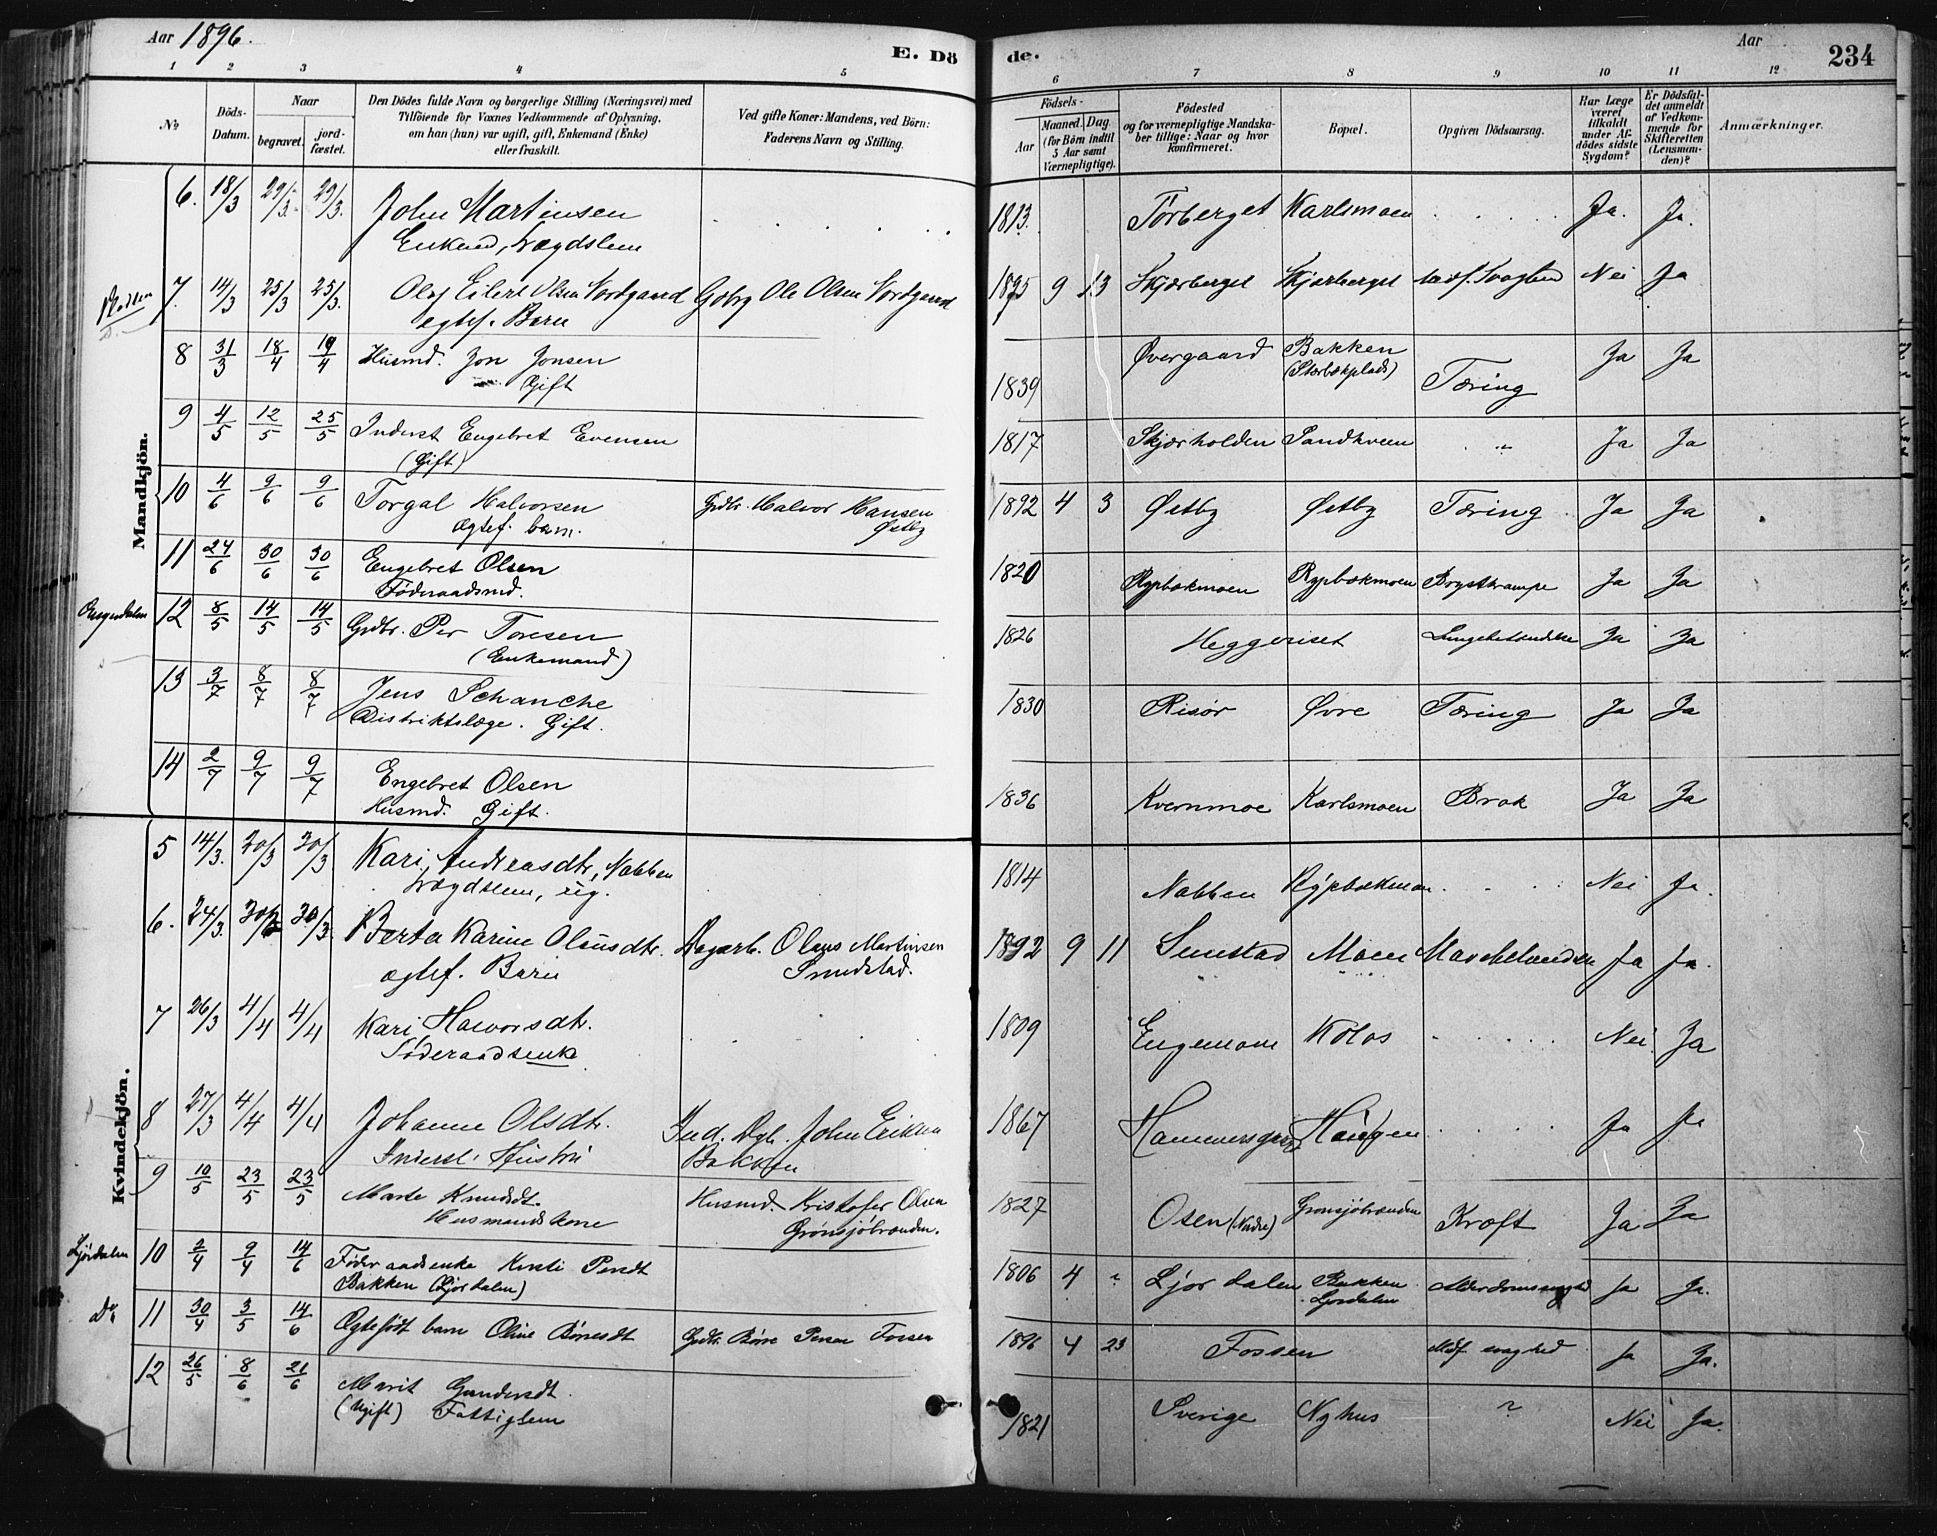 Aar 1896.
E. Dö
de.
Aar
234
1 2 3 4 5 6 7 8 9 10 11 12
No.
Döds-Datum.
Naar
begravet.
jordfæstet.
Den Dödes fulde Navn og borgerlige Stilling (Næringsvei) med
Tilföiende for Voxnes Vedkommende af Oplysning,
om han (hun) var ugift, gift, Enkemand (Enke)
eller fraskilt.
Ved gifte Koner: Mandens, ved Börn:
Faderens Navn og Stilling.
Födsels-
Aar
Maaned. Dag
(for Börn indtil
5 Aar samt
Værnepligtige).
Födested
og for værnepligtige Mandskaber tillige: Naar og hvor
konfirmeret.
Bopæl.
Opgiven Dödsaarsag.
Har Læge
været
tilkaldt
under Afdödes sidste
Sygdom?
Er Dödsfaldet anmeldt
af Vedkommende for
Skifteretten
(Lensmanden)?
Anmærkninger.
Mandkjön.
6. 18/3 29/3. 29/3. John Martinsen 1813. Törberget Karlsmoen Ja. Ja.
Enkemd, Lægdslem
7. 14/3 25/3 25/3. Olaf Eilert Olsen Nordgaard Gbrg Ole Olsen Nordgaard 1895 9 13 Skjærberget Skjærberget Medf. Svaghed Nei Ja
egtef. Barn
8 31/3 18/4 19/4 Husmd. Jon Jonsen 1839 Øvergaard Bakken Tæring Ja Ja
Gift (Størbækplads)
9 4/5 12/5 25/5 Inderst Engebret Evensen 1817 Skjærholden Sandkveen " Ja Ja
(Gift)
10 4/6 9/6 9/6 Torgal Halvorsen Grdbr. Halvor Hansen 1892 4 3 Østby Østby Tæring Ja Ja
Ægtef. barn. Østby
11 24/6 30/6 30/6 Engebret Olsen 1820 Rypbækmoen Rypbækmoen Brystkrampe Ja Ja
Føderaadsmd.
12 8/5 14/5 14/5 Grdbr. Per Toresen 1826 Heggeriset Lungebetændelse Ja Ja
(Enkemand)
13 3/7 8/7 8/7 Jens Schanche 1830 Risør Øvre Tæring Ja Ja
Distriktslæge. Gift.
14 2/7 9/7 9/7 Engebret Olsen 1836 Kvernmoe Karlsmoen Brok Ja Ja
Husmd. Gift.
Kvindekjön.
5 14/3. 20/3 20/3 Kari Andreasdtr, Nabben 1814 Nabben Rypbækmoen Nei Ja.
Lægdslem, ug.
6. 24/3. 30/3 30/3. Berta Karine Olausdtr. Dagarb. Olaus Martinsen 1892 9 11 Smestad Moen Mavebetændelse Ja Ja.
egtef. Barn Smestad.
7 26/3 4/4 4/4 Kari Halvorsdtr. 1809 Engemoen Kolos Nei Ja
Föderaadsenke
8 27/3 4/4 4/4 Johanne Olsdtr. Ind. Dgb. John Eriksen 1867 Haugen Ja Ja
Inderst. Hustru Bakken
9 10/5 23/5 23/5 Marte Knudsdt. Husmd. Kristofer Olsen 1827 Osen (Nordre) Grønsjöbrænden Kræft Ja Ja
Husmandskone Grönsjöbrænden.
Ljørdalen 10 2/4 9/4 14/6 Føderaadsenke Kersti Persdt 1806 4 ? Ljørdalen Bakken Alderdomssvaghed Ja Ja.
Bakken (Ljørdalen) Ljørdalen
Do. 11 30/4 3/5 14/6 Ægtefødt barn Oline Børresdt Grdbr. Børre Persen Fossen 1896 4 23 Fossen Medf. svaghed Ja Ja.
12 26/5 8/6 21/6 Marit Gundersdt. 1821 Sverige Nyhus ? Nei Ja.
(Ugift) Fattiglem